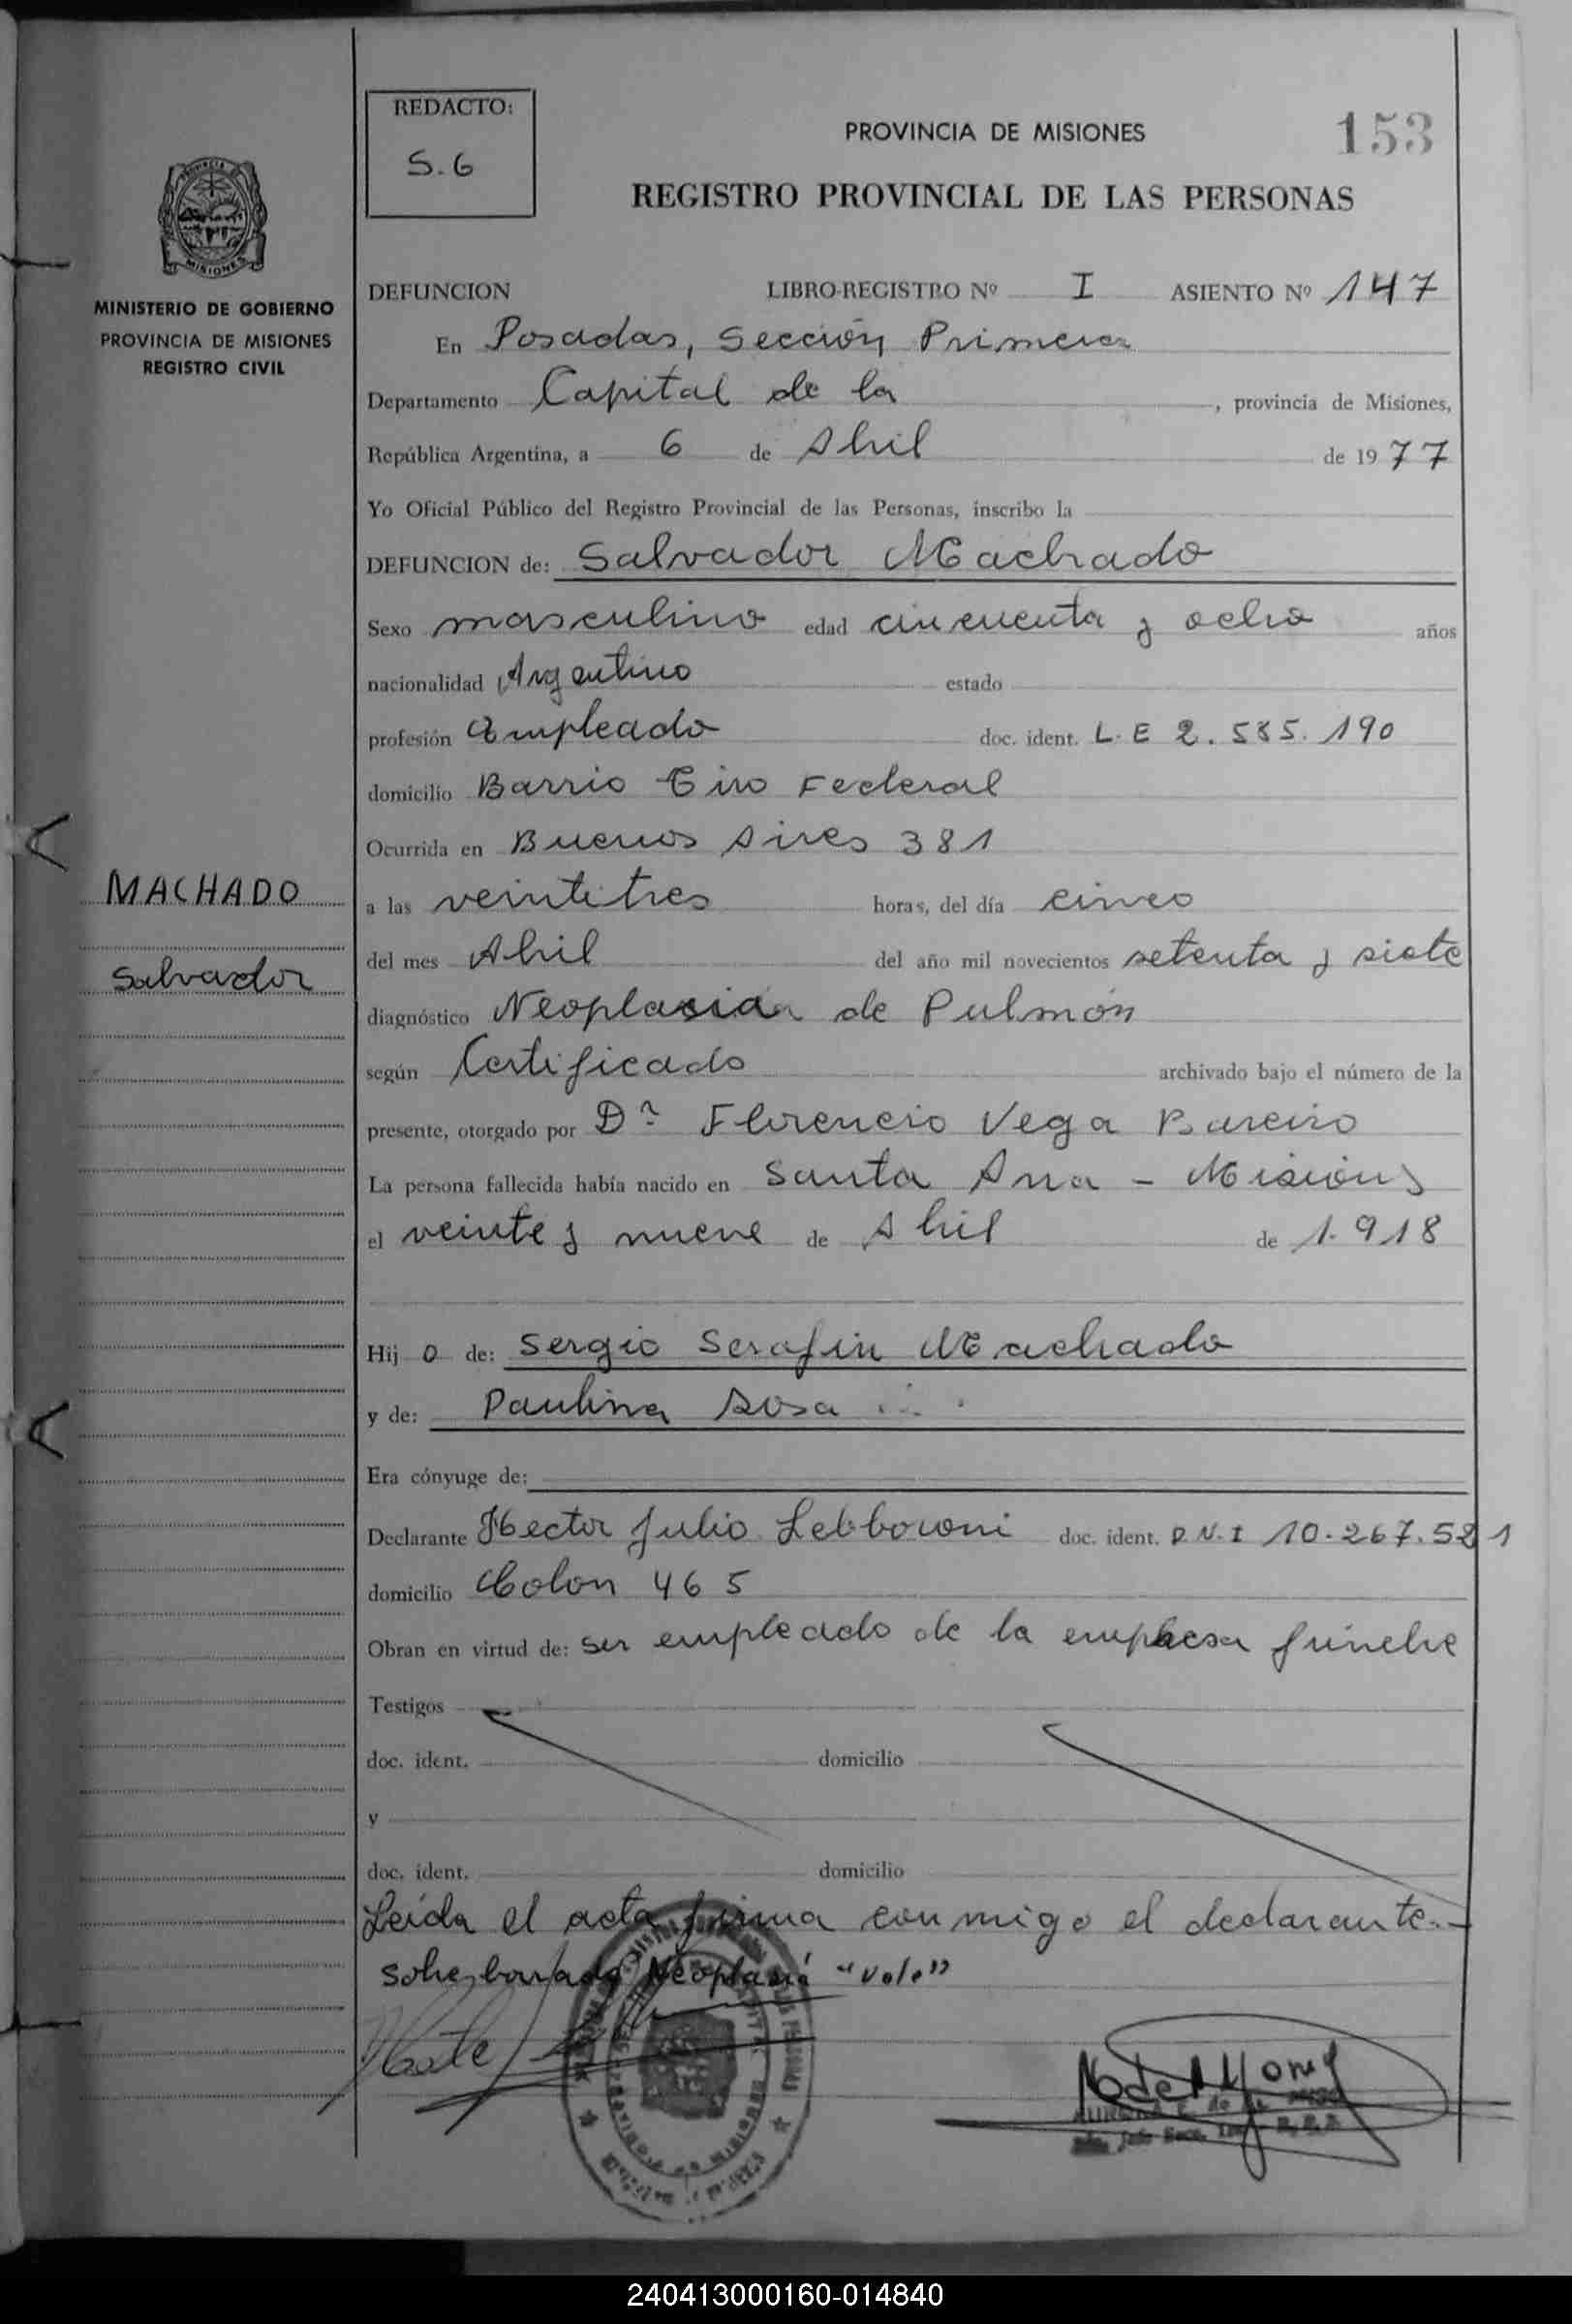 REDACTO:
S.G
PROVINCIA DE MISIONES
153
REGISTRO PROVINCIAL DE LAS PERSONAS
MISIONES
MINISTERIO DE GOBIERNO
PROVINCIA DE MISIONES
REGISTRO CIVIL
DEFUNCION LIBRO-REGISTRO Nº I ASIENTO Nº 147
En Posadas, Sección Primera
Departamento Capital de la , provincia de Misiones,
República Argentina, a 6 de Abril de 1977
Yo Oficial Público del Registro Provincial de las Personas, inscribo la
DEFUNCION de: Salvador Machado
Sexo masculino edad cincuenta y ocho años
nacionalidad Argentino estado
profesión Empleado doc. ident. L.E 2.585.190
domicilio Barrio Tiro Federal
Ocurrida en Buenos Aires 381
MACHADO
a las veintitres horas, del día cinco
Salvador
del mes Abril del año mil novecientos setenta y siete
diagnóstico Neoplasia de Pulmón
según Certificado archivado bajo el número de la
presente, otorgado por Dr Florencio Vega Bareiro
La persona fallecida había nacido en Santa Ana - Misiones
el veinte y nueve de Abril de 1.918
Hijo de: Sergio Serafin Machado
y de: Paulina Sosa
Era cónyuge de:
Declarante Hector Julio Lebboroni doc. ident. D.N.I 10.267.521
domicilio Colon 465
Obran en virtud de: ser empleado de la empresa fúnebre
Testigos
doc. ident. domicilio
y
doc. ident. domicilio
Leída el acta firma conmigo el declarante.-
Sobreborrado Neoplasia "Vale"
240413000160-014840